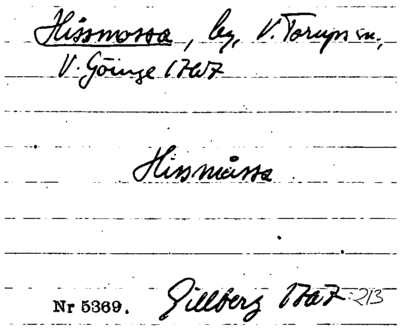 Hissmossa, by, V. Torups sn.,
V. Göinge 1767
Hissmåssa
Nr 5369. Gillberg 1767: 213